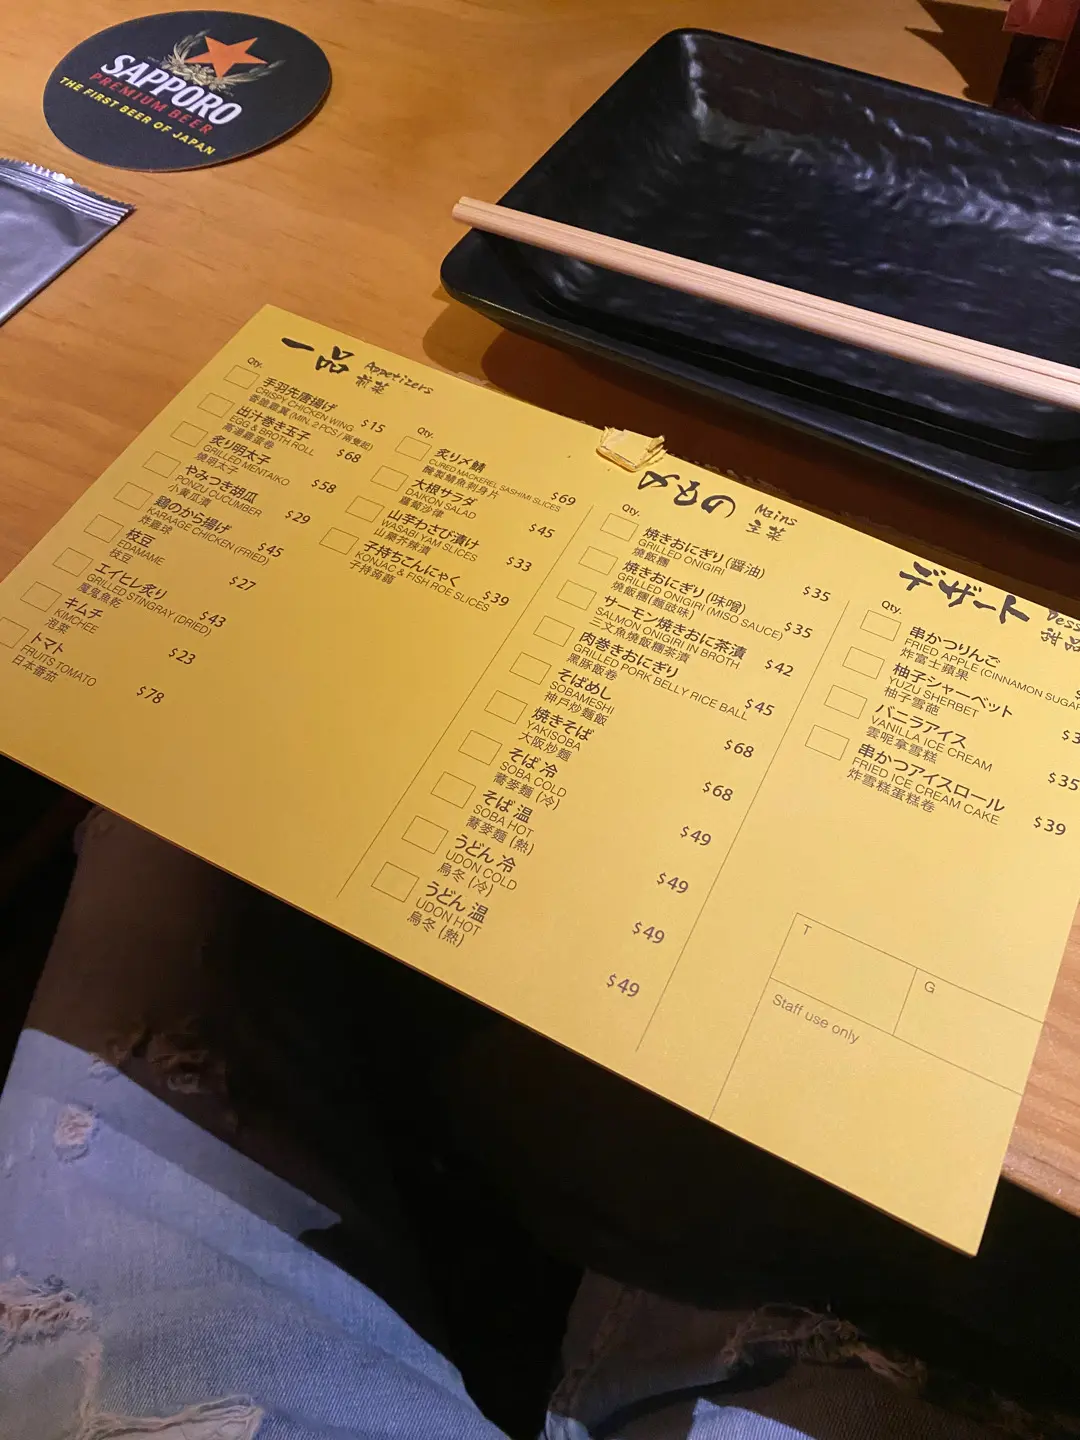 SAPPORO
PREMIUM BEER
THE FIRST BEER OF JAPAN
一品 Appetizers
前菜
Qty.
手羽先唐揚げ
CRISPY CHICKEN WING $15
香脆雞翼 (MIN. 2 PCS / 兩隻起)
出汁巻き玉子
EGG & BROTH ROLL $68
高湯雞蛋卷
炙り明太子
GRILLED MENTAIKO $58
燒明太子
やみつき胡瓜
PONZU CUCUMBER $29
小黃瓜漬
鶏のから揚げ
KARAAGE CHICKEN (FRIED) $45
炸雞球
枝豆
EDAMAME $27
枝豆
エイヒレ炙り
GRILLED STINGRAY (DRIED) $43
魔鬼魚乾
キムチ
KIMCHEE $23
泡菜
トマト
FRUITS TOMATO $78
日本番茄
Qty.
炙り〆鯖
CURED MACKEREL SASHIMI SLICES $69
醃製鯖魚刺身片
大根サラダ
DAIKON SALAD $45
蘿蔔沙律
山芋わさび漬け
WASABI YAM SLICES $33
山藥芥辣漬
子持ちこんにゃく
KONJAC & FISH ROE SLICES $39
子持蒟蒻
〆もの Mains
主菜
Qty.
焼きおにぎり (醤油)
GRILLED ONIGIRI $35
燒飯糰
焼きおにぎり (味噌)
GRILLED ONIGIRI (MISO SAUCE) $35
燒飯糰 (麵豉味)
サーモン焼きおに茶漬
SALMON ONIGIRI IN BROTH $42
三文魚燒飯糰茶漬
肉巻きおにぎり
GRILLED PORK BELLY RICE BALL $45
黑豚飯卷
そばめし
SOBAMESHI $68
神戶炒麵飯
焼きそば
YAKISOBA $68
大阪炒麵
そば 冷
SOBA COLD $49
蕎麥麵 (冷)
そば 温
SOBA HOT $49
蕎麥麵 (熱)
うどん 冷
UDON COLD $49
烏冬 (冷)
うどん 温
UDON HOT $49
烏冬 (熱)
デザート Dess
甜品
Qty.
串かつりんご
FRIED APPLE (CINNAMON SUGAR
炸富士蘋果
柚子シャーベット
YUZU SHERBET
柚子雪葩
バニラアイス
VANILLA ICE CREAM $35
雲呢拿雪糕
串かつアイスロール
FRIED ICE CREAM CAKE $39
炸雪糕蛋糕卷
T
G
Staff use only